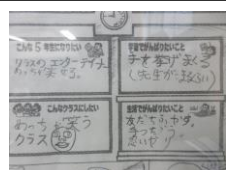 こんな5年生になりたい
クラスのエンターテイナー
めっちゃ笑せる。
学習でがんばりたいこと
手を挙げまくる
(先生が
こんなクラスにしたい
めっちゃ笑う
クラス
生活でがんばりたいこと
友だちふやす。
手つだう
思いやり